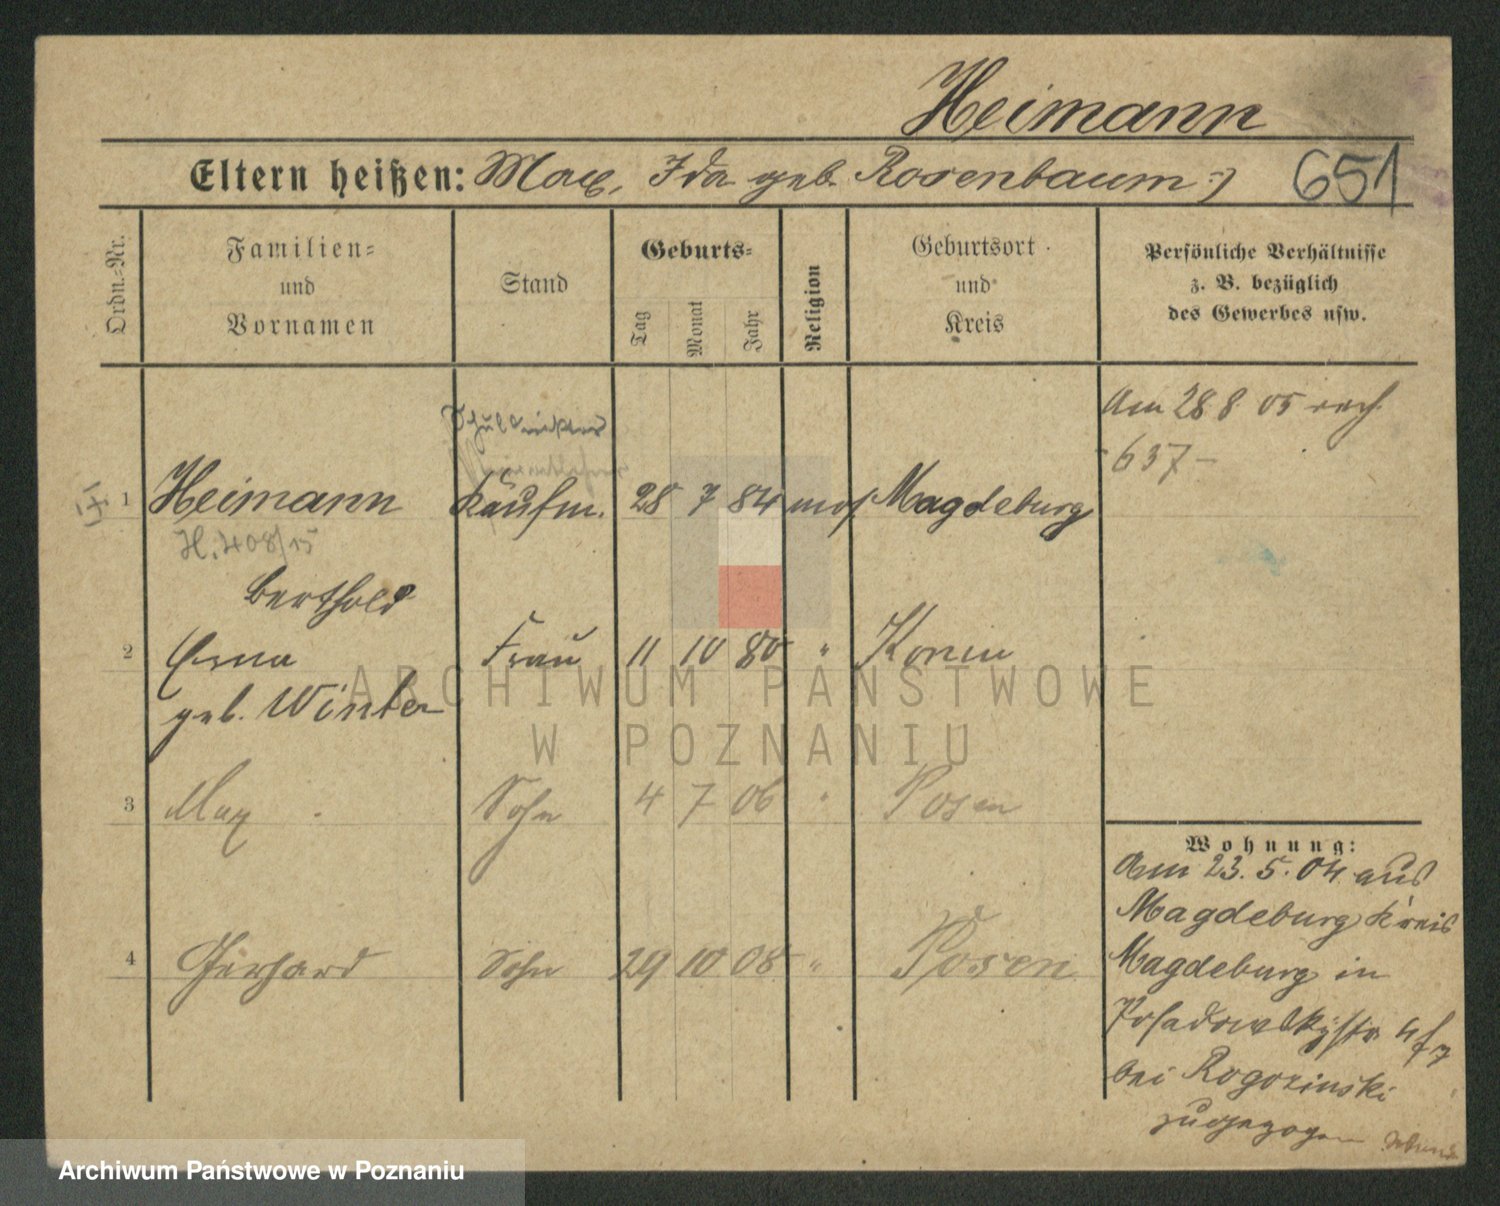 Heimann
Eltern heißen: Max, Ida geb. Rosenbaum
651
Ordn.-Nr.
Familien-
und
Vornamen
Stand
Geburts-
Tag
Monat
Jahr
Religion
Geburtsort
und
Kreis
Persönliche Verhältnisse
z. B. bezüglich
des Gewerbes usw.
Am 28 8 05 nach
637
1 Heimann Kaufm. 28 7 84 mos. Magdeburg
H. 408/15
Berthold
2 Erna Frau 11 10 80 " Konin
geb. Winter
3 Max Sohn 4 7 06 " Posen
4 Gerhard Sohn 29 10 08 " Posen
Wohnung:
Am 23. 5. 04 aus
Magdeburg Kreis
Magdeburg in
Posadowskystr. 4
bei Rogozinski
zugezogen
ARCHIWUM PAŃSTWOWE
W POZNANIU
Archiwum Państwowe w Poznaniu